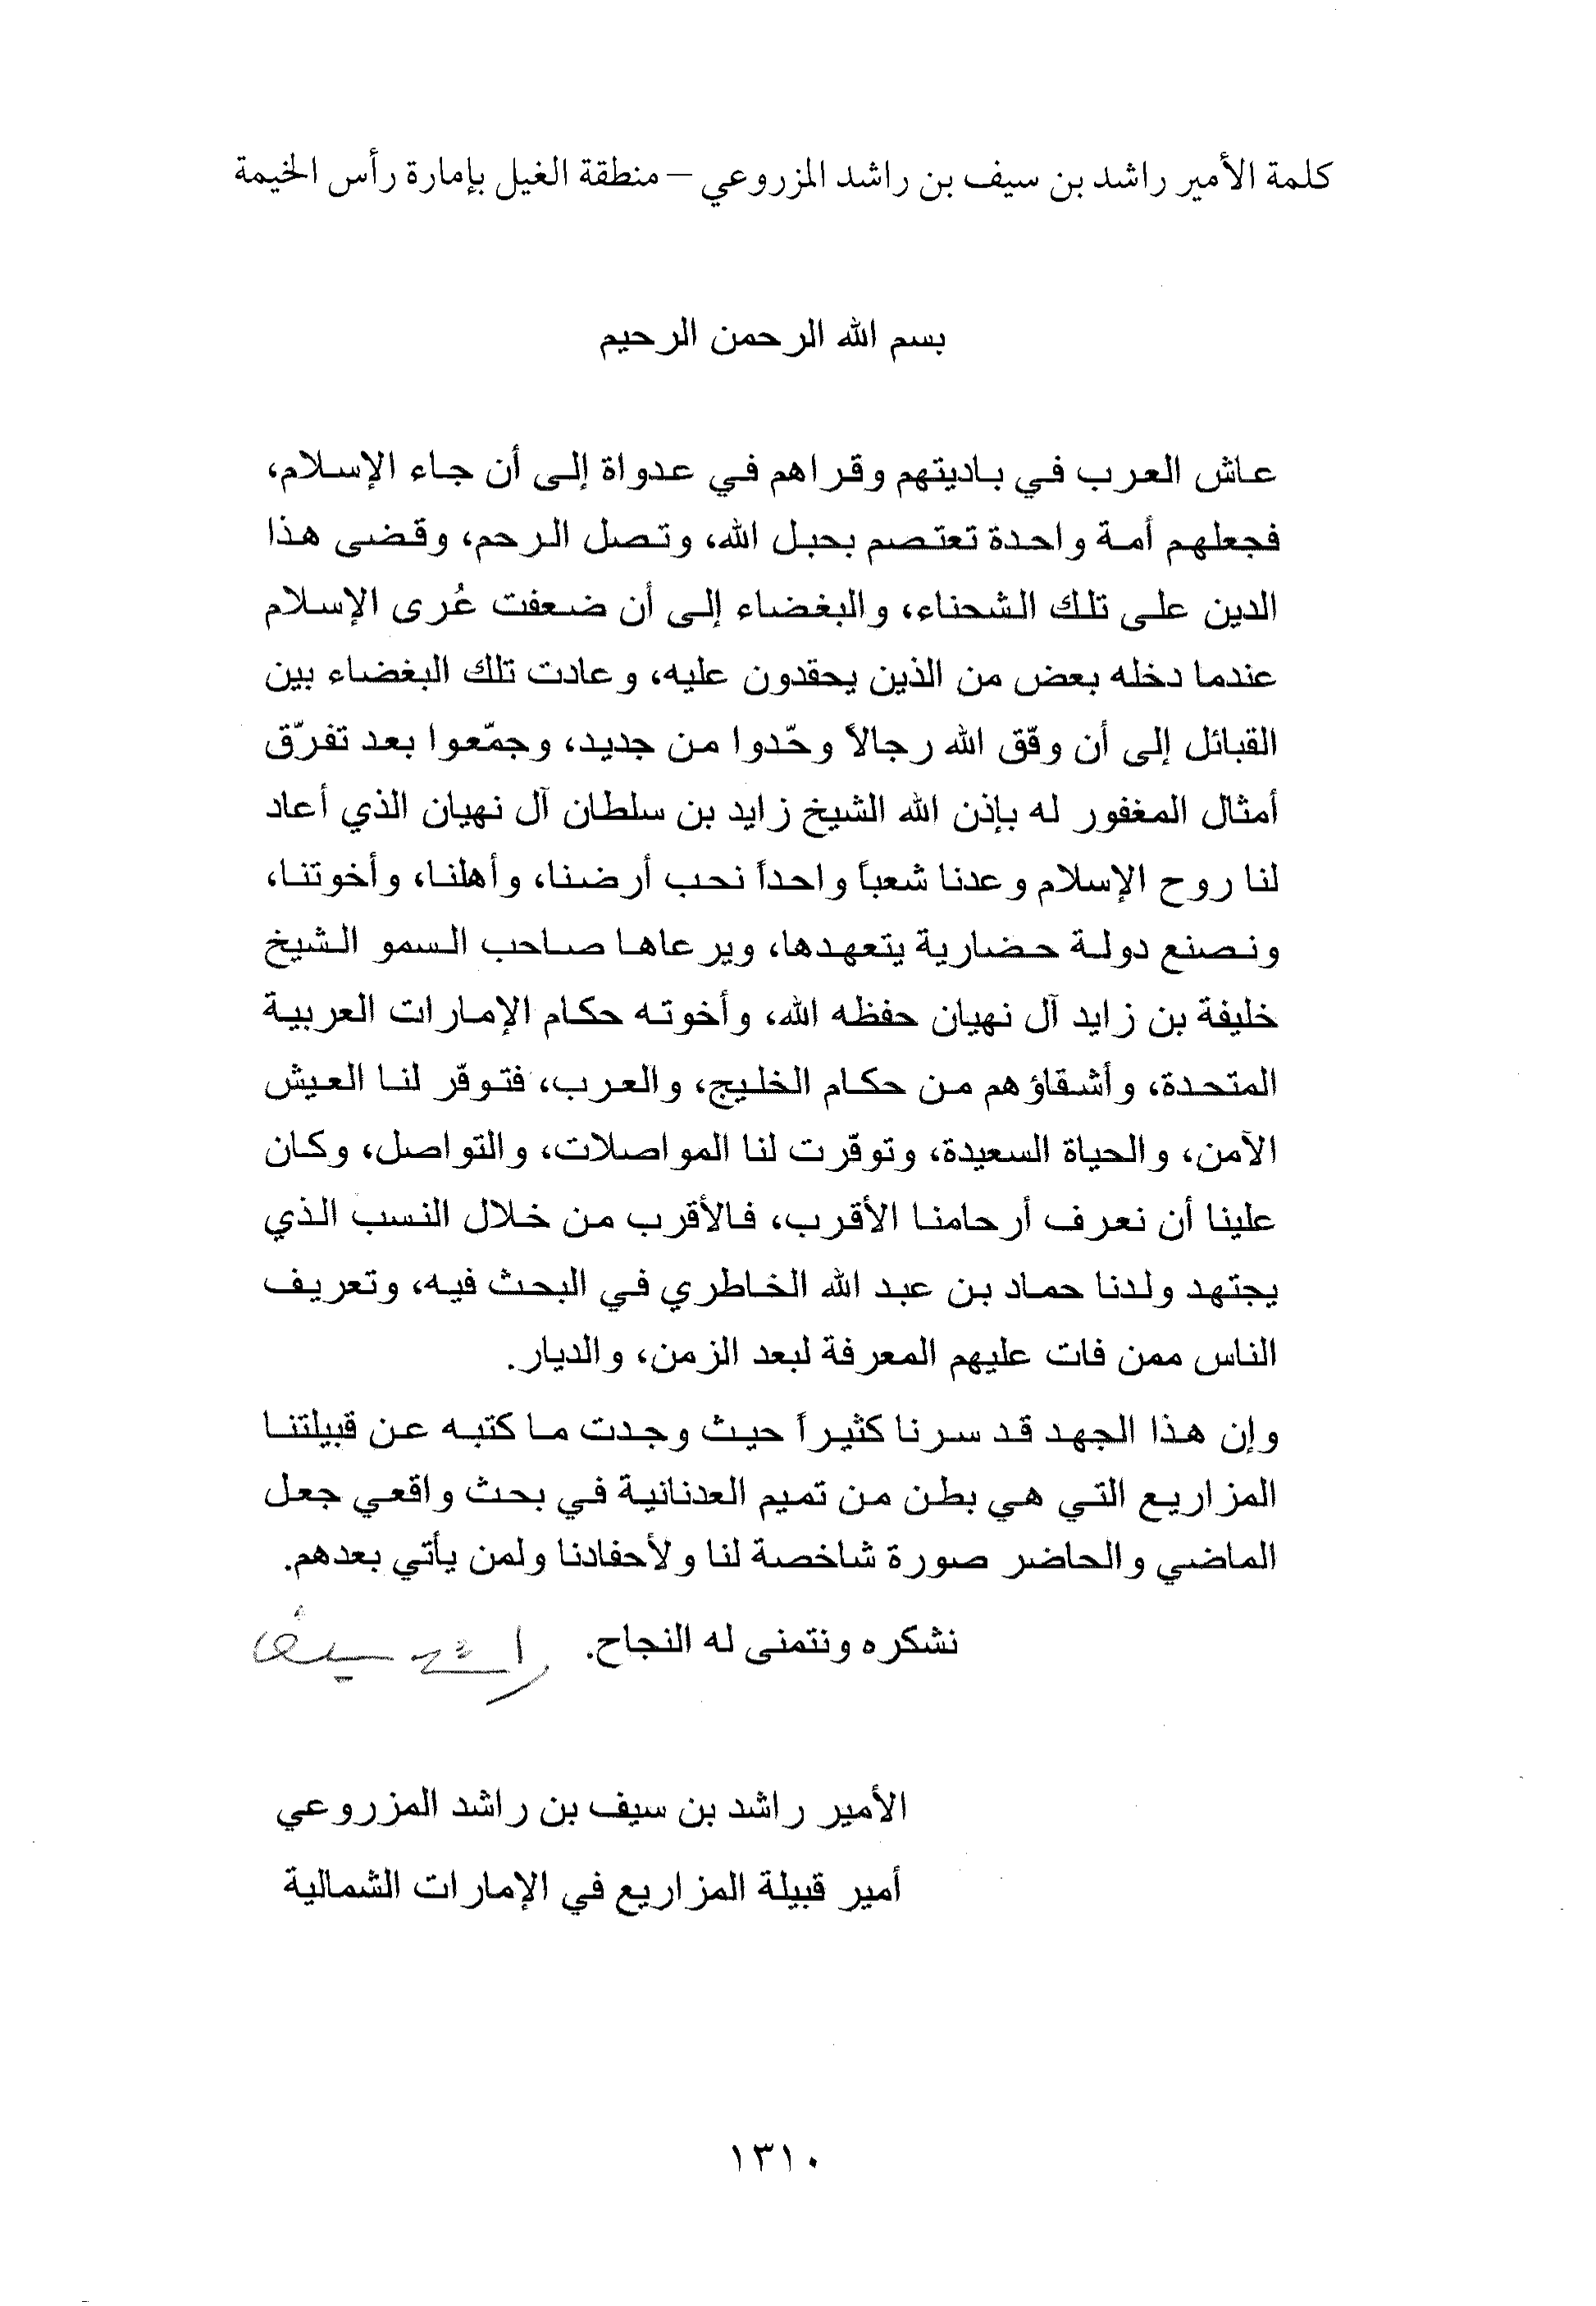 كلمة الأمير راشد بن سيف بن راشد المزروعي – منطقة الغيل بإمارة رأس الخيمة
بسم الله الرحمن الرحيم
عاش العرب في باديتهم وقراهم في عدواة إلى أن جاء الإسلام،
فجعلهم أمة واحدة تعتصم بحبل الله، وتصل الرحم، وقضى هذا
الدين على تلك الشحناء، والبغضاء إلى أن ضعفت عُرى الإسلام
عندما دخله بعض من الذين يحقدون عليه، وعادت تلك البغضاء بين
القبائل إلى أن وفّق الله رجالاً وحّدوا من جديد، وجمّعوا بعد تفرّق
أمثال المغفور له بإذن الله الشيخ زايد بن سلطان آل نهيان الذي أعاد
لنا روح الإسلام وعدنا شعباً واحداً نحب أرضنا، وأهلنا، وأخوتنا،
ونصنع دولة حضارية يتعهدها، ويرعاها صاحب السمو الشيخ
خليفة بن زايد آل نهيان حفظه الله، وأخوته حكام الإمارات العربية
المتحدة، وأشقاؤهم من حكام الخليج، والعرب، فتوفّر لنا العيش
الآمن، والحياة السعيدة، وتوفّرت لنا المواصلات، والتواصل، وكان
علينا أن نعرف أرحامنا الأقرب، فالأقرب من خلال النسب الذي
يجتهد ولدنا حماد بن عبد الله الخاطري في البحث فيه، وتعريف
الناس ممن فات عليهم المعرفة لبعد الزمن، والديار.
وإن هذا الجهد قد سرنا كثيراً حيث وجدت ما كتبه عن قبيلتنا
المزاريع التي هي بطن من تميم العدنانية في بحث واقعي جعل
الماضي والحاضر صورة شاخصة لنا ولأحفادنا ولمن يأتي بعدهم.
نشكره ونتمنى له النجاح. راشد سيف
الأمير راشد بن سيف بن راشد المزروعي
أمير قبيلة المزاريع في الإمارات الشمالية
١٣١٠